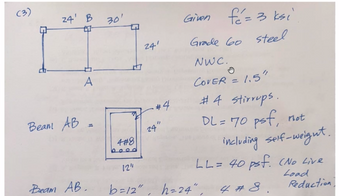 (3)
24' B 30'
24'
A
Given f'c = 3 ksi
Grade 60 steel
NWC.
COVER = 1.5"
#4 stirrups.
DL = 70 psf, not
including self-weight.
LL = 40 psf. (No Live
Load
Reduction)
Beam AB =
#4
24"
4#8
12"
Beam AB. b=12", h=24", 4 #8.